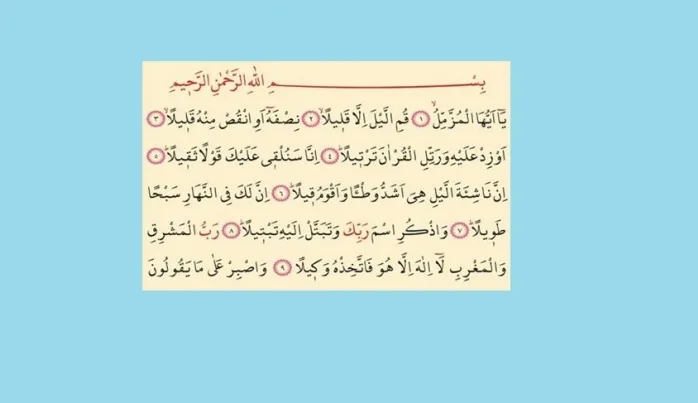 بِسْمِ اللّٰهِ الرَّحْمٰنِ الرَّحٖيمِ
يَٓا اَيُّهَا الْمُزَّمِّلُۙ ﴿١﴾ قُمِ الَّيْلَ اِلَّا قَلٖيلًاۙ ﴿٢﴾ نِصْفَهُٓ اَوِ انْقُصْ مِنْهُ قَلٖيلًاۙ ﴿٣﴾
اَوْ زِدْ عَلَيْهِ وَرَتِّلِ الْقُرْاٰنَ تَرْتٖيلًاۜ ﴿٤﴾ اِنَّا سَنُلْقٖى عَلَيْكَ قَوْلًا ثَقٖيلًاۜ ﴿٥﴾
اِنَّ نَاشِئَةَ الَّيْلِ هِىَ اَشَدُّ وَطْـًٔا وَاَقْوَمُ قٖيلًاۜ ﴿٦﴾ اِنَّ لَكَ فِى النَّهَارِ سَبْحًا
طَوٖيلًاۜ ﴿٧﴾ وَاذْكُرِ اسْمَ رَبِّكَ وَتَبَتَّلْ اِلَيْهِ تَبْتٖيلًاۜ ﴿٨﴾ رَبُّ الْمَشْرِقِ
وَالْمَغْرِبِ لَٓا اِلٰهَ اِلَّا هُوَ فَاتَّخِذْهُ وَكٖيلًا ﴿٩﴾ وَاصْبِرْ عَلٰى مَا يَقُولُونَ